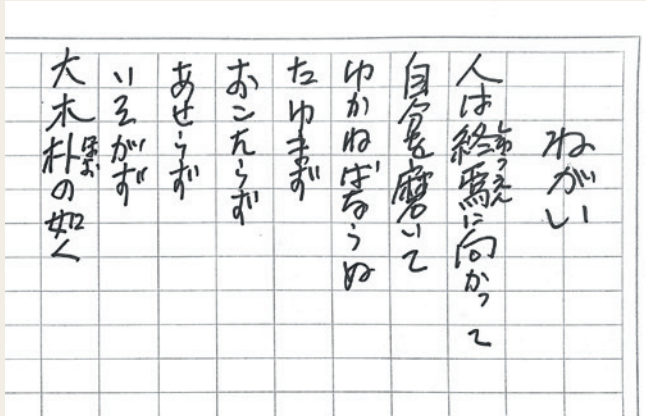 ねがい
人は終焉に向かって
自分を磨いて
ゆかねばならぬ
たゆまず
おこたらず
あせらず
いそがず
大木朴の如く
ほお